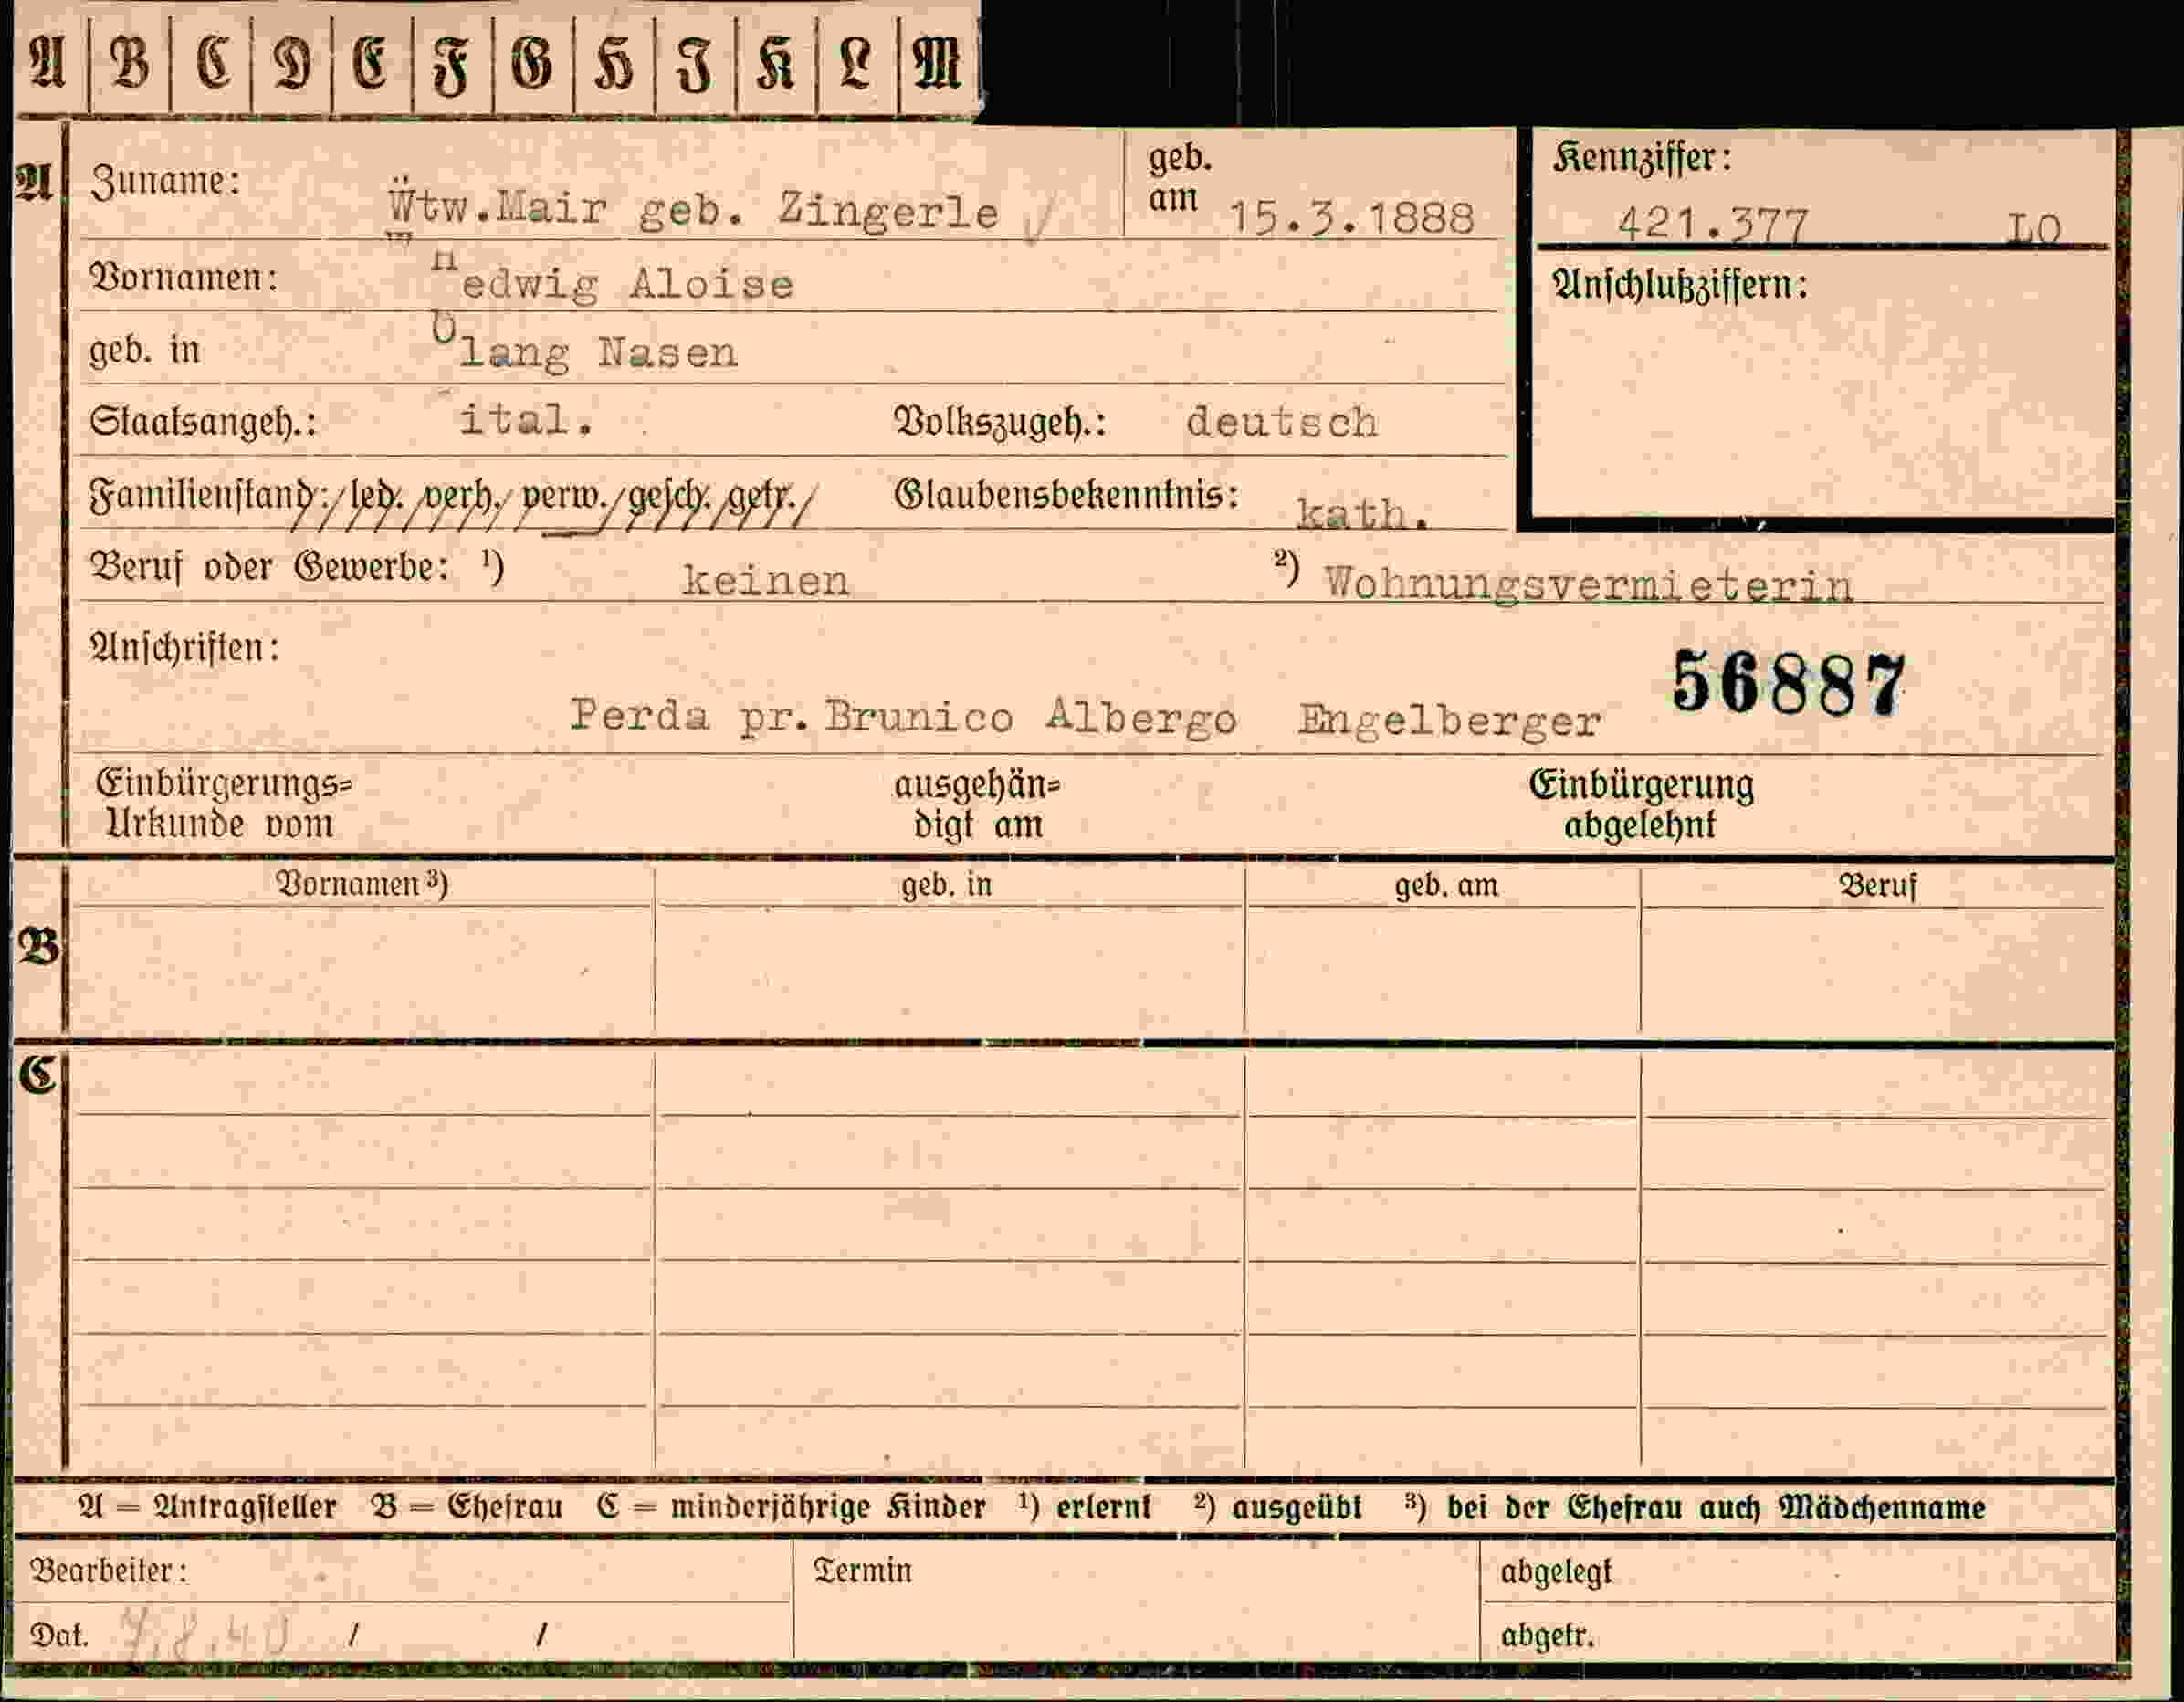 A B C D E F G H I K L M
A Zuname: Wtw.Mair geb. Zingerle geb. am 15.3.1888 Kennziffer: 421.377 LO
Vornamen: Hedwig Aloise Anschlußziffern:
geb. in Olang Nasen
Staatsangeh.: ital. Volkszugeh.: deutsch
Familienstand: led. verh. verw. gesch. getr. Glaubensbekenntnis: kath.
Beruf oder Gewerbe: ¹) keinen ²) Wohnungsvermieterin
Anschriften:
56887
Perda pr. Brunico Albergo Engelberger
Einbürgerungs= ausgehän= Einbürgerung
Urkunde vom digt am abgelehnt
Vornamen ³) geb. in geb. am Beruf
B
C
A = Antragsteller B = Ehefrau C = minderjährige Kinder ¹) erlernt ²) ausgeübt ³) bei der Ehefrau auch Mädchenname
Bearbeiter: Termin abgelegt
Dat. 7.8.40 / / abgetr.